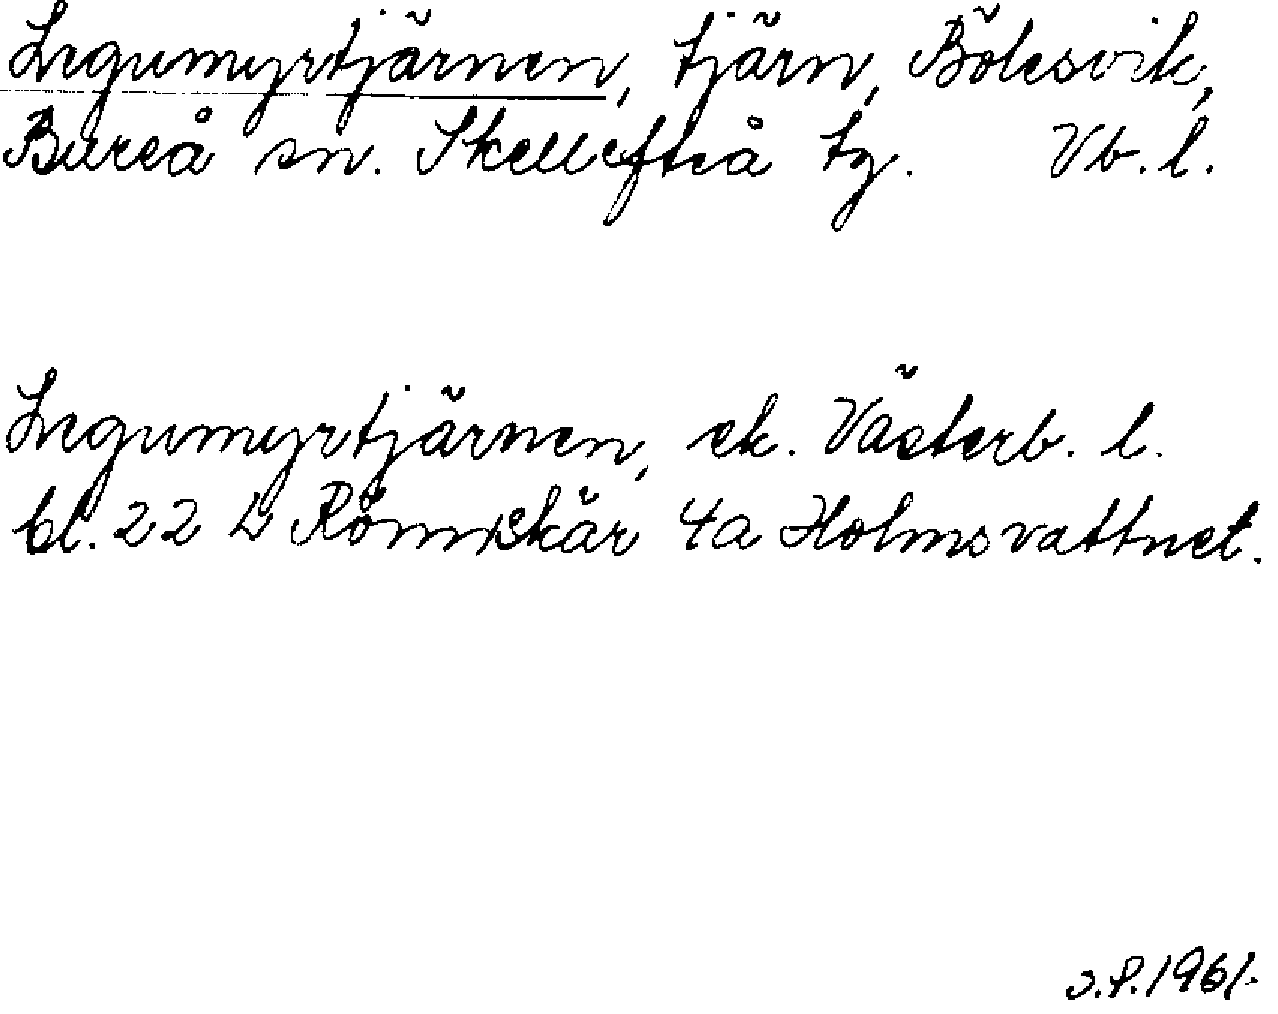 Legumyrtjärnen, tjärn, Bölesvik,
Bureå sn. Skellefteå tg. Vb. l.
Legumyrtjärnen, ek. Västerb. l.
bl. 22 L Rönnskär 4a Holmsvattnet.
O.P. 1961.